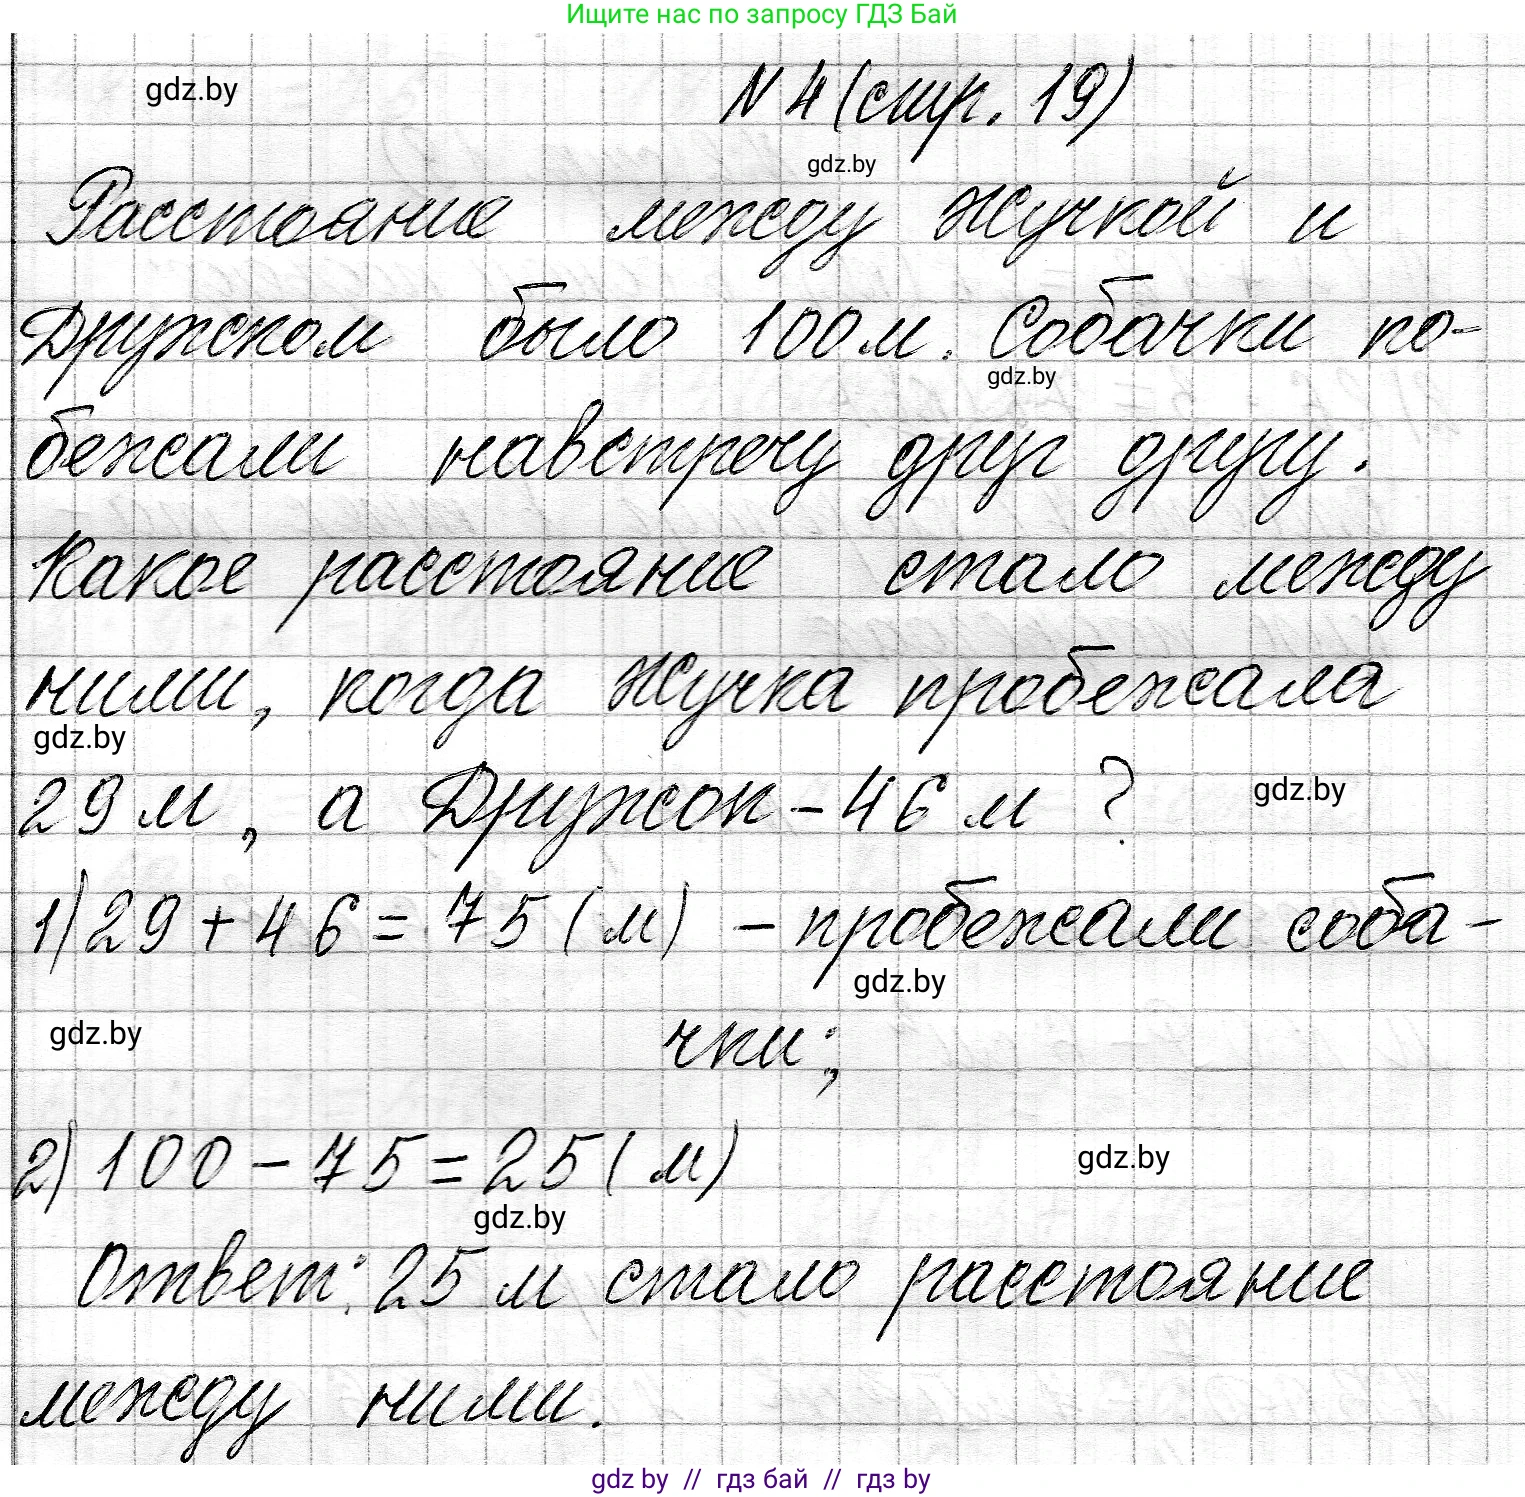 Ищите нас по запросу ГДЗ Бай
gdz.by
N 4 (стр. 19)
gdz.by
Расстояние между Жучкой и
Дружком было 100 м. Собачки по-
gdz.by
бежали навстречу друг другу.
Какое расстояние стало между
ними, когда Жучка пробежала
gdz.by
29 м, а Дружок - 46 м ?
gdz.by
1) 29 + 46 = 75 (м) - пробежали соба-
gdz.by
gdz.by
чки;
2) 100 - 75 = 25 (м)
gdz.by
gdz.by
Ответ: 25 м стало расстояние
между ними.
gdz by // гдз бай // гдз by